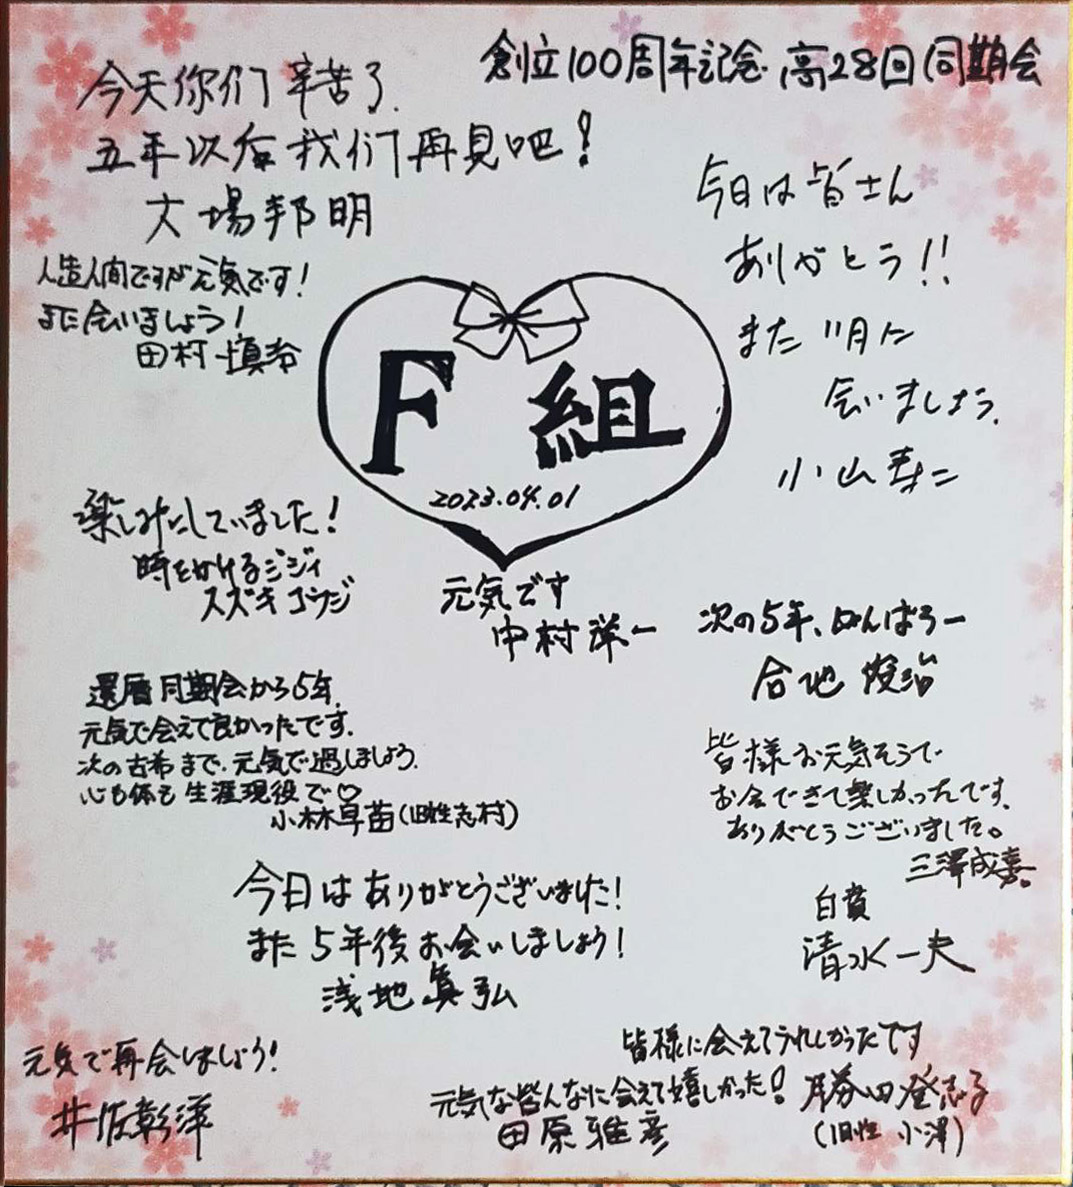 創立100周年記念 高28回同期会
今天你们辛苦了.
五年以后我们再見吧!
大場邦明
今日は皆さん
ありがとう!!
また11月に
会いましょう.
小山泰二
人造人間ですが元気です!
また会いましょう!
田村慎治
F組
2023.04.01
楽しみにしていました!
時をかけるジジィ
スズキコウジ
元気です
中村洋一
次の5年、がんばろー
合地俊治
還暦同期会から5年.
元気で会えて良かったです.
次の古希まで.元気で過しましょう.
心も体も生涯現役で♡
小林早苗(旧姓志村)
皆様お元気そうで
お会できて楽しかったです.
ありがとうございました。
三澤成嘉
白賁
清水一夫
今日はありがとうございました!
また5年後お会いしましょう!
浅地眞弘
元気で再会しましょう!
井坂彰洋
皆様に会えてうれしかったです
勝田登志子
(旧姓 小澤)
元気な皆んなに会えて嬉しかった!
田原雅彦